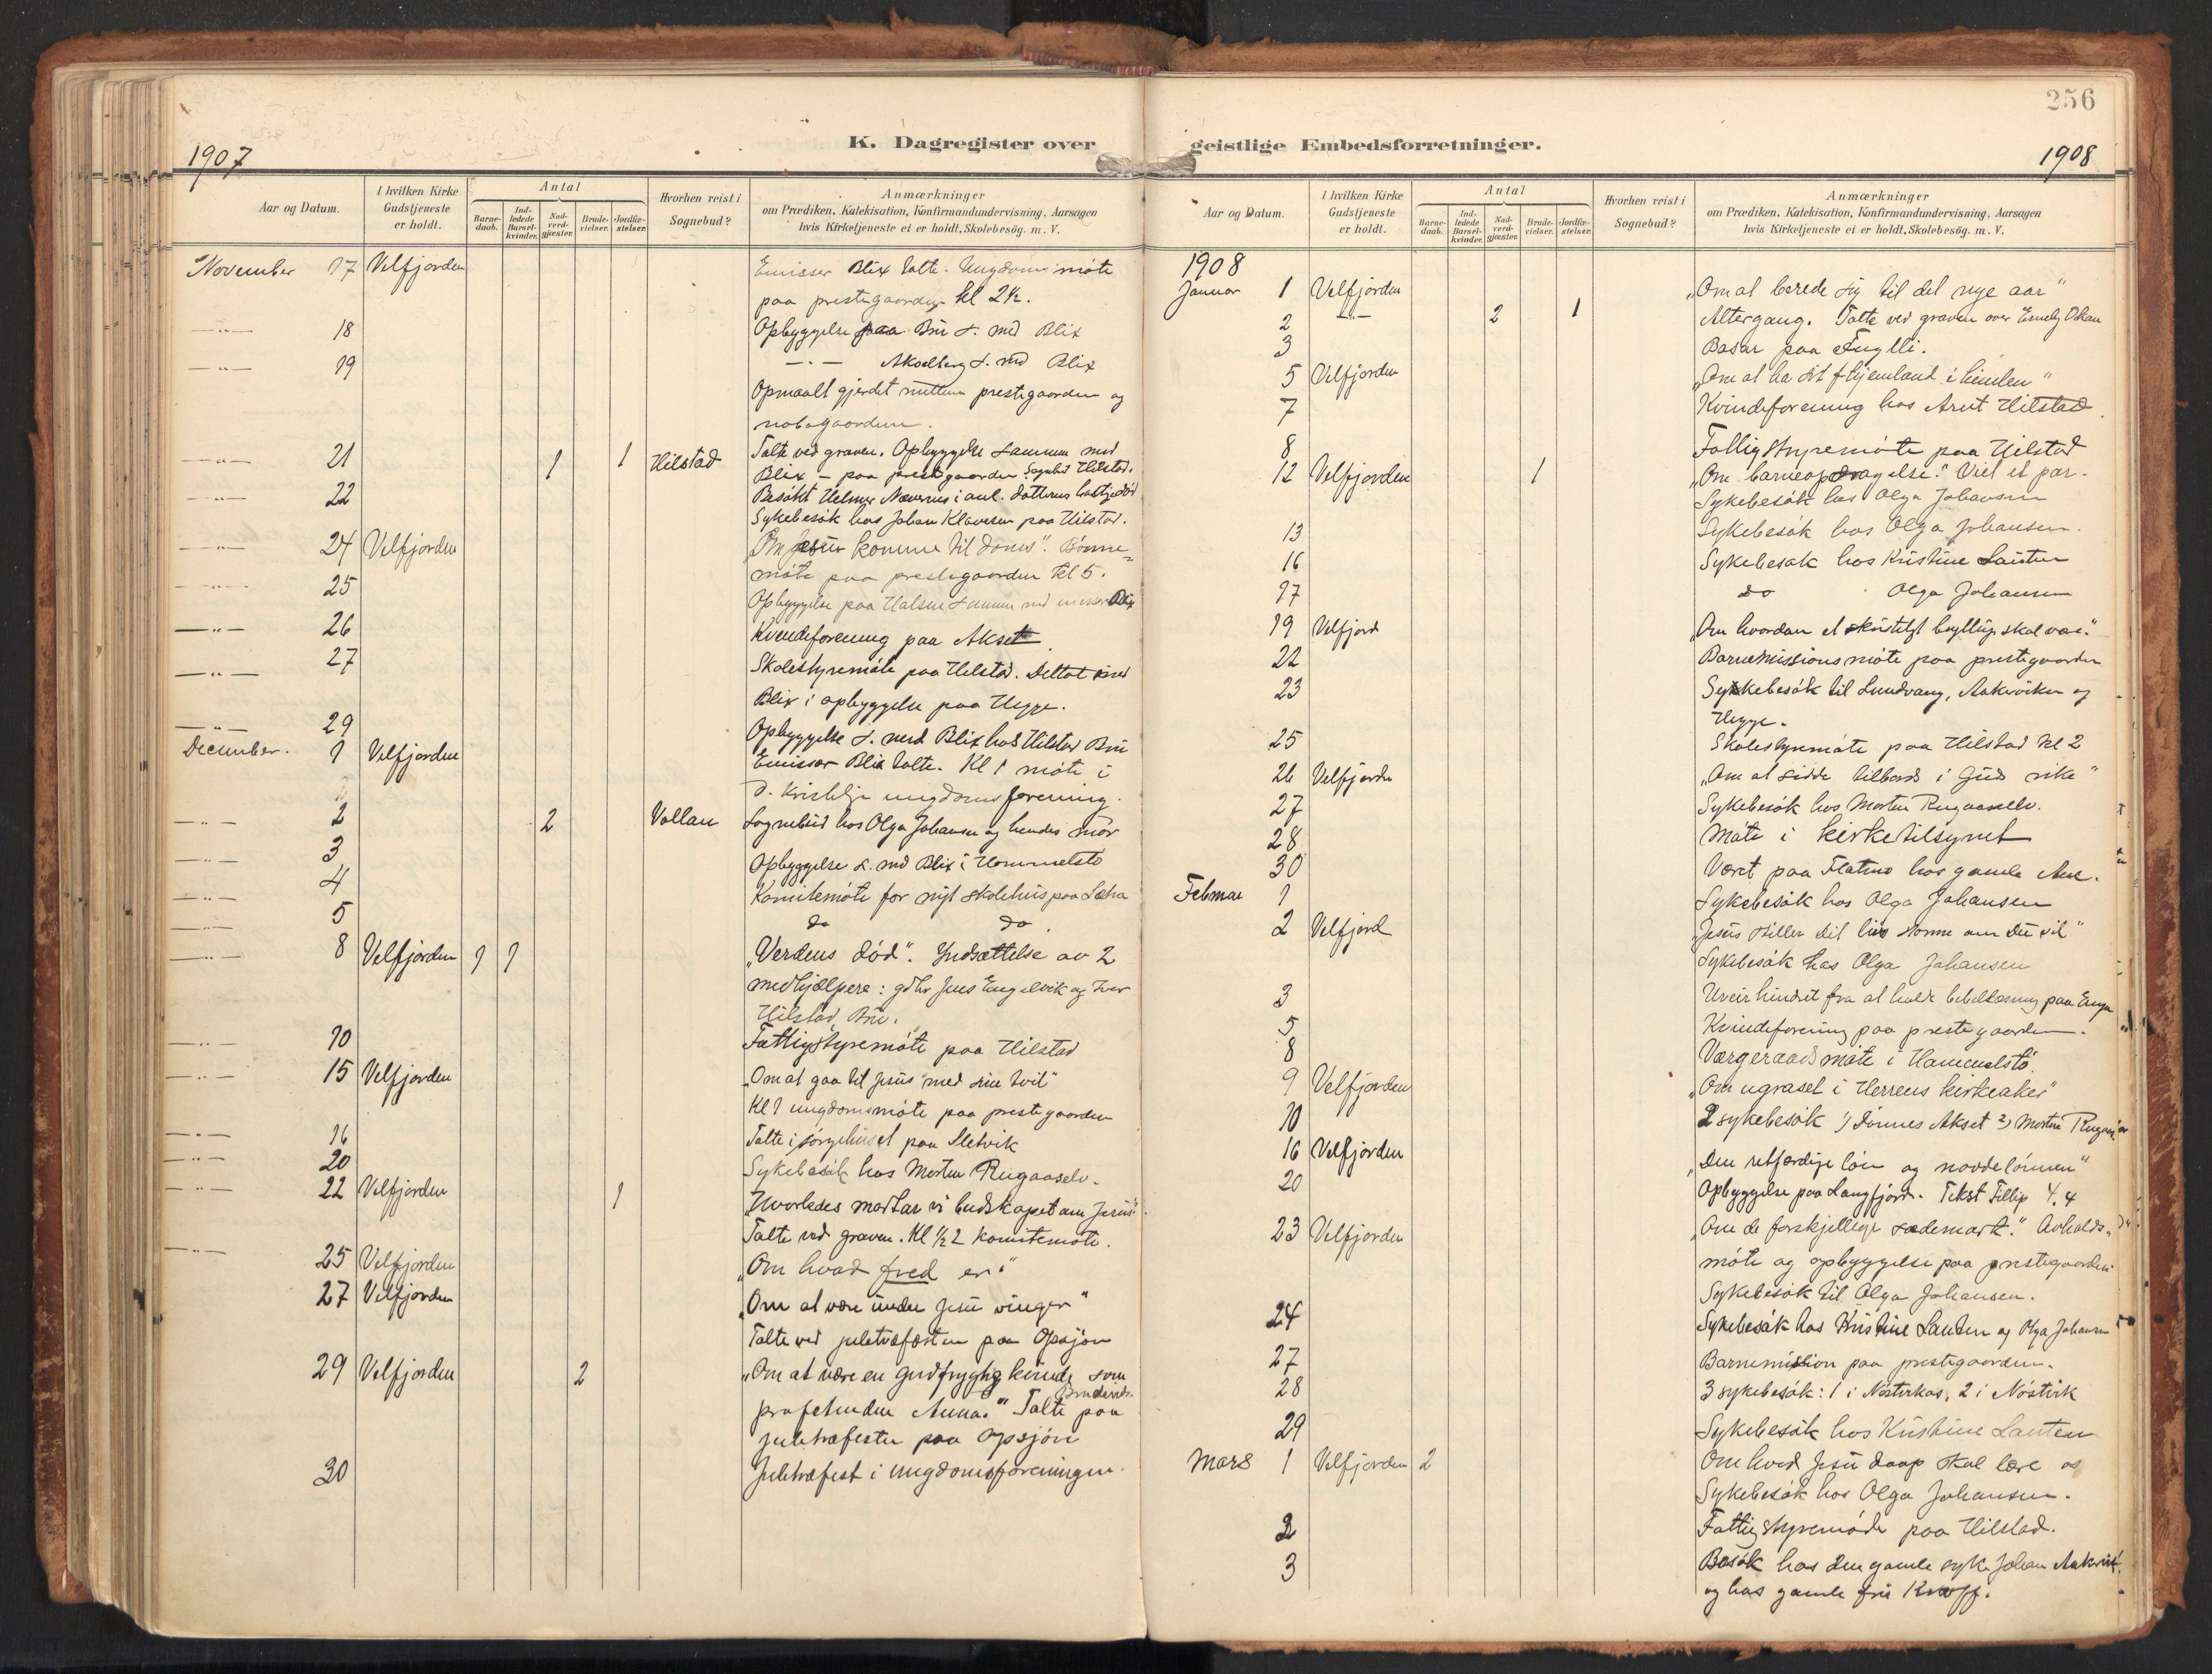 256
K. Dagregister over geistlige Embedsforretninger.
1907
1908
Aar og Datum.
I hvilken Kirke Gudstjeneste er holdt.
Antal
Barnedaab.
Indledede Barselkvinder.
Nadverdgjæster.
Brudevielser.
Jordfæstelser.
Hvorhen reist i Sognebud?
Anmærkninger
om Prædiken, Katekisation, Konfirmandundervisning, Aarsagen
hvis Kirketjeneste ei er holdt, Skolebesög. m. V.
November 17 Velfjorden Emissær Blix talte. Ungdomsmöte
paa prestegaarden kl 2½.
—„— 18 Opbyggelse paa Bru s. med Blix
—„— 19 —„— s. med Blix
Opmaalt gjerdet mellem prestegaarden og
nabogaarden.
—„— 21 1 1 Hilstad Talte ved graven. Opbyggelse sammen med
Blix – paa prestegaarden. Sognebud Hilstad.
—„— 22 Besökt Helmer i anl. datterens
Sykebesök hos Johan Klausen paa Hilstad.
—„— 24 Velfjorden „Om Jesu komme til doms". Bönne-
möte paa prestegaarden kl 5.
—„— 25 Opbyggelse paa Halsen sammen med emissær Blix
—„— 26 Kvindeforening paa Akset.
—„— 27 Skolestyremöte paa Hilstad. Deltat med
Blix i opbyggelse paa Hegge.
—„— 29 Opbyggelse s. med Blix hos Hilstad Bru
December. 1 Velfjorden Emissær Blix talte. Kl 1 möte i
d. kristelige ungdomsforening.
—„— 2 2 Vollan Sognebud hos Olga Johansen og hendes mor
—„— 3 Opbyggelse s. med Blix i Hommelstö
—„— 4 Komitemöte for nyt skolehus paa
—„— 5 do do
—„— 8 Velfjorden 1 1 „Verdens död". Indsættelse av 2
medhjælpere: gdbr Jens Engelvik og Iver
Hilstad, Bru.
—„— 10 Fattigstyremöte paa Hilstad
—„— 15 Velfjorden „Om at gaa til Jesus med sin tvil"
Kl 1 ungdomsmöte paa prestegaarden
—„— 16 Talte i sörgehuset paa Sletvik
—„— 20 Sykebesök hos Morten Rugaaselv.
—„— 22 Velfjorden 1 „Hvorledes mottar vi budskapet om Jesus".
Talte ved graven. Kl ½2 komitemöte.
—„— 25 Velfjorden „Om hvad fred er"
27 Velfjorden „Om at være under Jesu vinger"
Talte ved juletræfesten paa Opsjön
29 Velfjorden 2 „Om at være en gudfrygtig kvinde som
profetinden Anna." Talte paa
juletræfesten paa Opsjön
30 Juletræfest i ungdomsforeningen.
1908
Januar 1 Velfjorden „Om at berede sig til det nye aar"
2 —„— 2 1 Altergang. Talte ved graven over
3 Basar paa Fuglli.
5 Velfjorden „Om at ha sit hjemland i himlen"
7 Kvindeforening hos Arnt Hilstad.
8 Fattigstyremöte paa Hilstad
12 Velfjorden 1 „Om barneopdragelse." Viet et par.
Sykebesök hos Olga Johansen
13 Sykebesök hos Olga Johansen.
16 Sykebesök hos Kristine Lauten
17 do Olga Johansen
19 Velfjord „Om hvordan et kristeligt bryllup skal være."
22 Barnemissionsmöte paa prestegaarden
23 Sykebesök til Lundvang, Aakviken og
Hegge.
25 Skolestyremöte paa Hilstad kl 2
26 Velfjorden „Om at sidde tilbords i Guds rike"
27 Sykebesök hos Morten Rugaaselv.
28 Möte i kirketilsynet
30 Været paa Flatmo hos gamle Ane.
Februar 1 Sykebesök hos Olga Johansen
2 Velfjord „Jesus stiller dit livs storme om du vil"
Sykebesök hos Olga Johansen
3 Uveir hindret fra at holde bibellæsning paa
5 Kvindeforening paa prestegaarden.
8 Værgeraadsmöte i Hommelstö.
9 Velfjorden „Om ugræset i Herrens kirkeaker"
10 2 sykebesök 1) Dönnes Akset 2) Morten
16 Velfjorden „Den retfærdige lön og naadelönnen"
20 Opbyggelse paa Langfjord. Tekst Fillip 4.4
23 Velfjorden „Om de forskjellige sædemark." Avholds-
möte og opbyggelse paa prestegaarden
Sykebesök til Olga Johansen.
24 Sykebesök hos Kristine Lauten og Olga Johansen
27 Barnemission paa prestegaarden.
28 3 sykebesök: 1 i Nöstvikas, 2 i Nöstvik
29 Sykebesök hos Kristine Lauten
Mars 1 Velfjorden 2 Om hvad Jesu daap skal lære os
Sykebesök hos Olga Johansen.
2 Fattigstyremöde paa Hilstad.
3 Besök hos den gamle syke Johan Aakvik
og hos gamle fru Knoff.